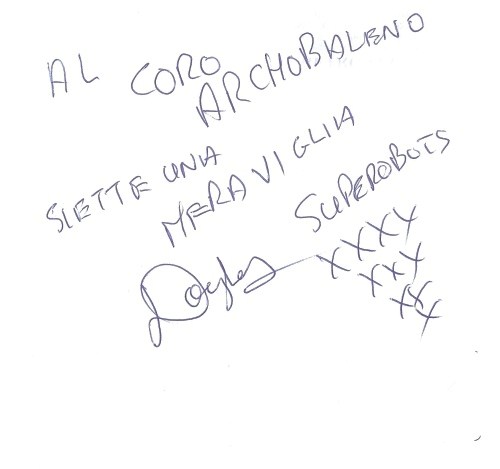 AL CORO
ARCHOBALENO
SIETTE UNA
MERAVIGLIA
SUPEROBOTS
Douglas
XXXX
XXX
XX
X